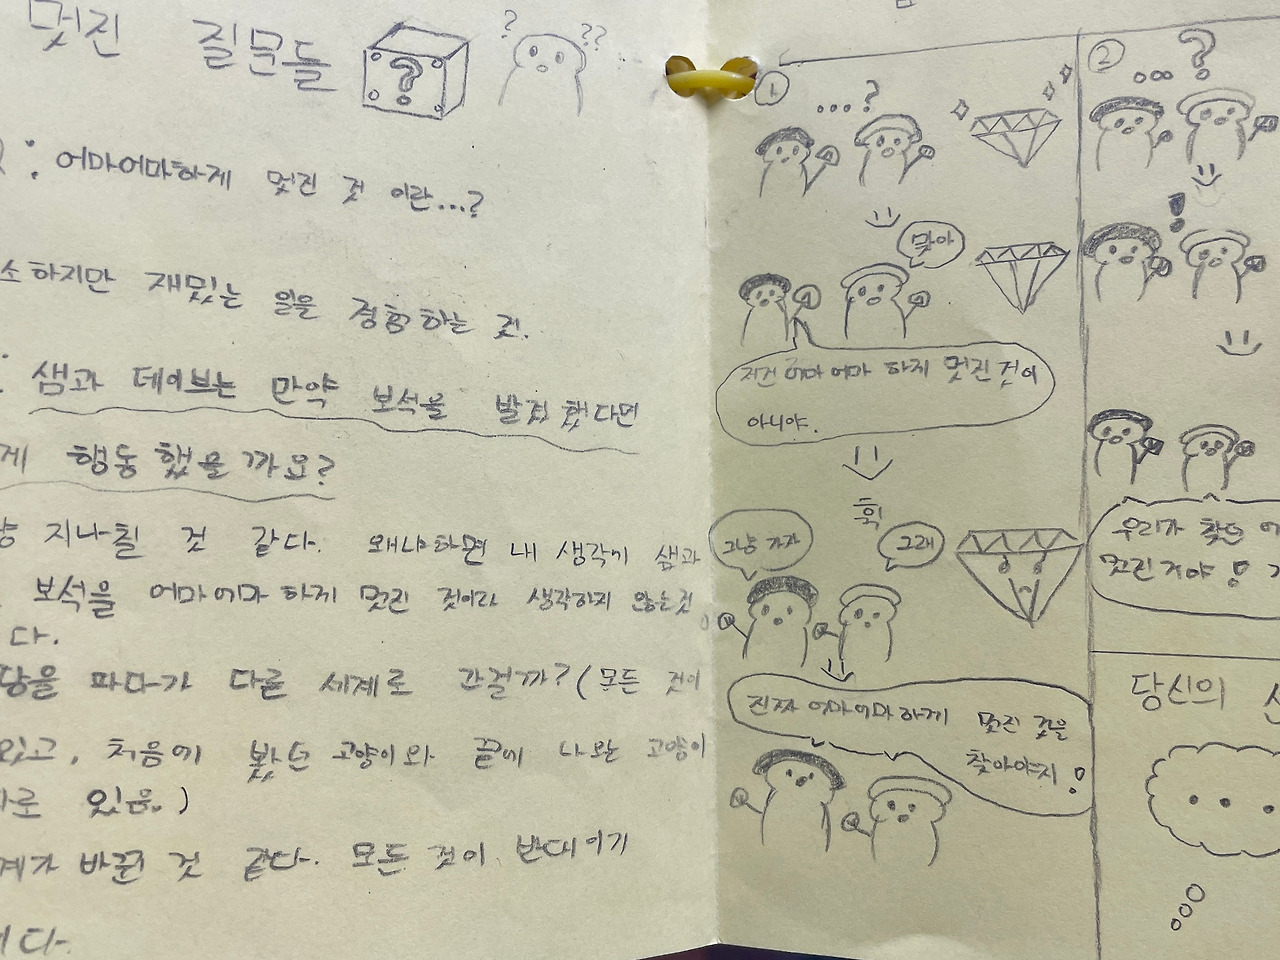 멋진 질문들
?
? ??
: 어마어마하게 멋진 것 이란...?
소하지만 재밌는 일을 경험하는 것.
: 샘과 데이브는 만약 보석을 발견했다면
게 행동했을까요?
냥 지나칠 것 같다. 왜냐하면 내 생각이 샘과
보석을 어마어마하게 멋진 것이라 생각하지 않는것
다.
땅을 파다가 다른 세계로 간걸까? (모든 것이
있고, 처음에 봤던 고양이와 끝에 나오는 고양이
로 있음.)
계가 바뀐 것 같다. 모든 것이 반대이기
다.
①
...?
맞아
저건 어마어마 하지 멋진 것이
아니야.
휙
그냥 가자
그래
진짜 어마어마하게 멋진 것을
찾아야지!
②
...?
!
우리가 찾던
멋진거야!
당신의
...